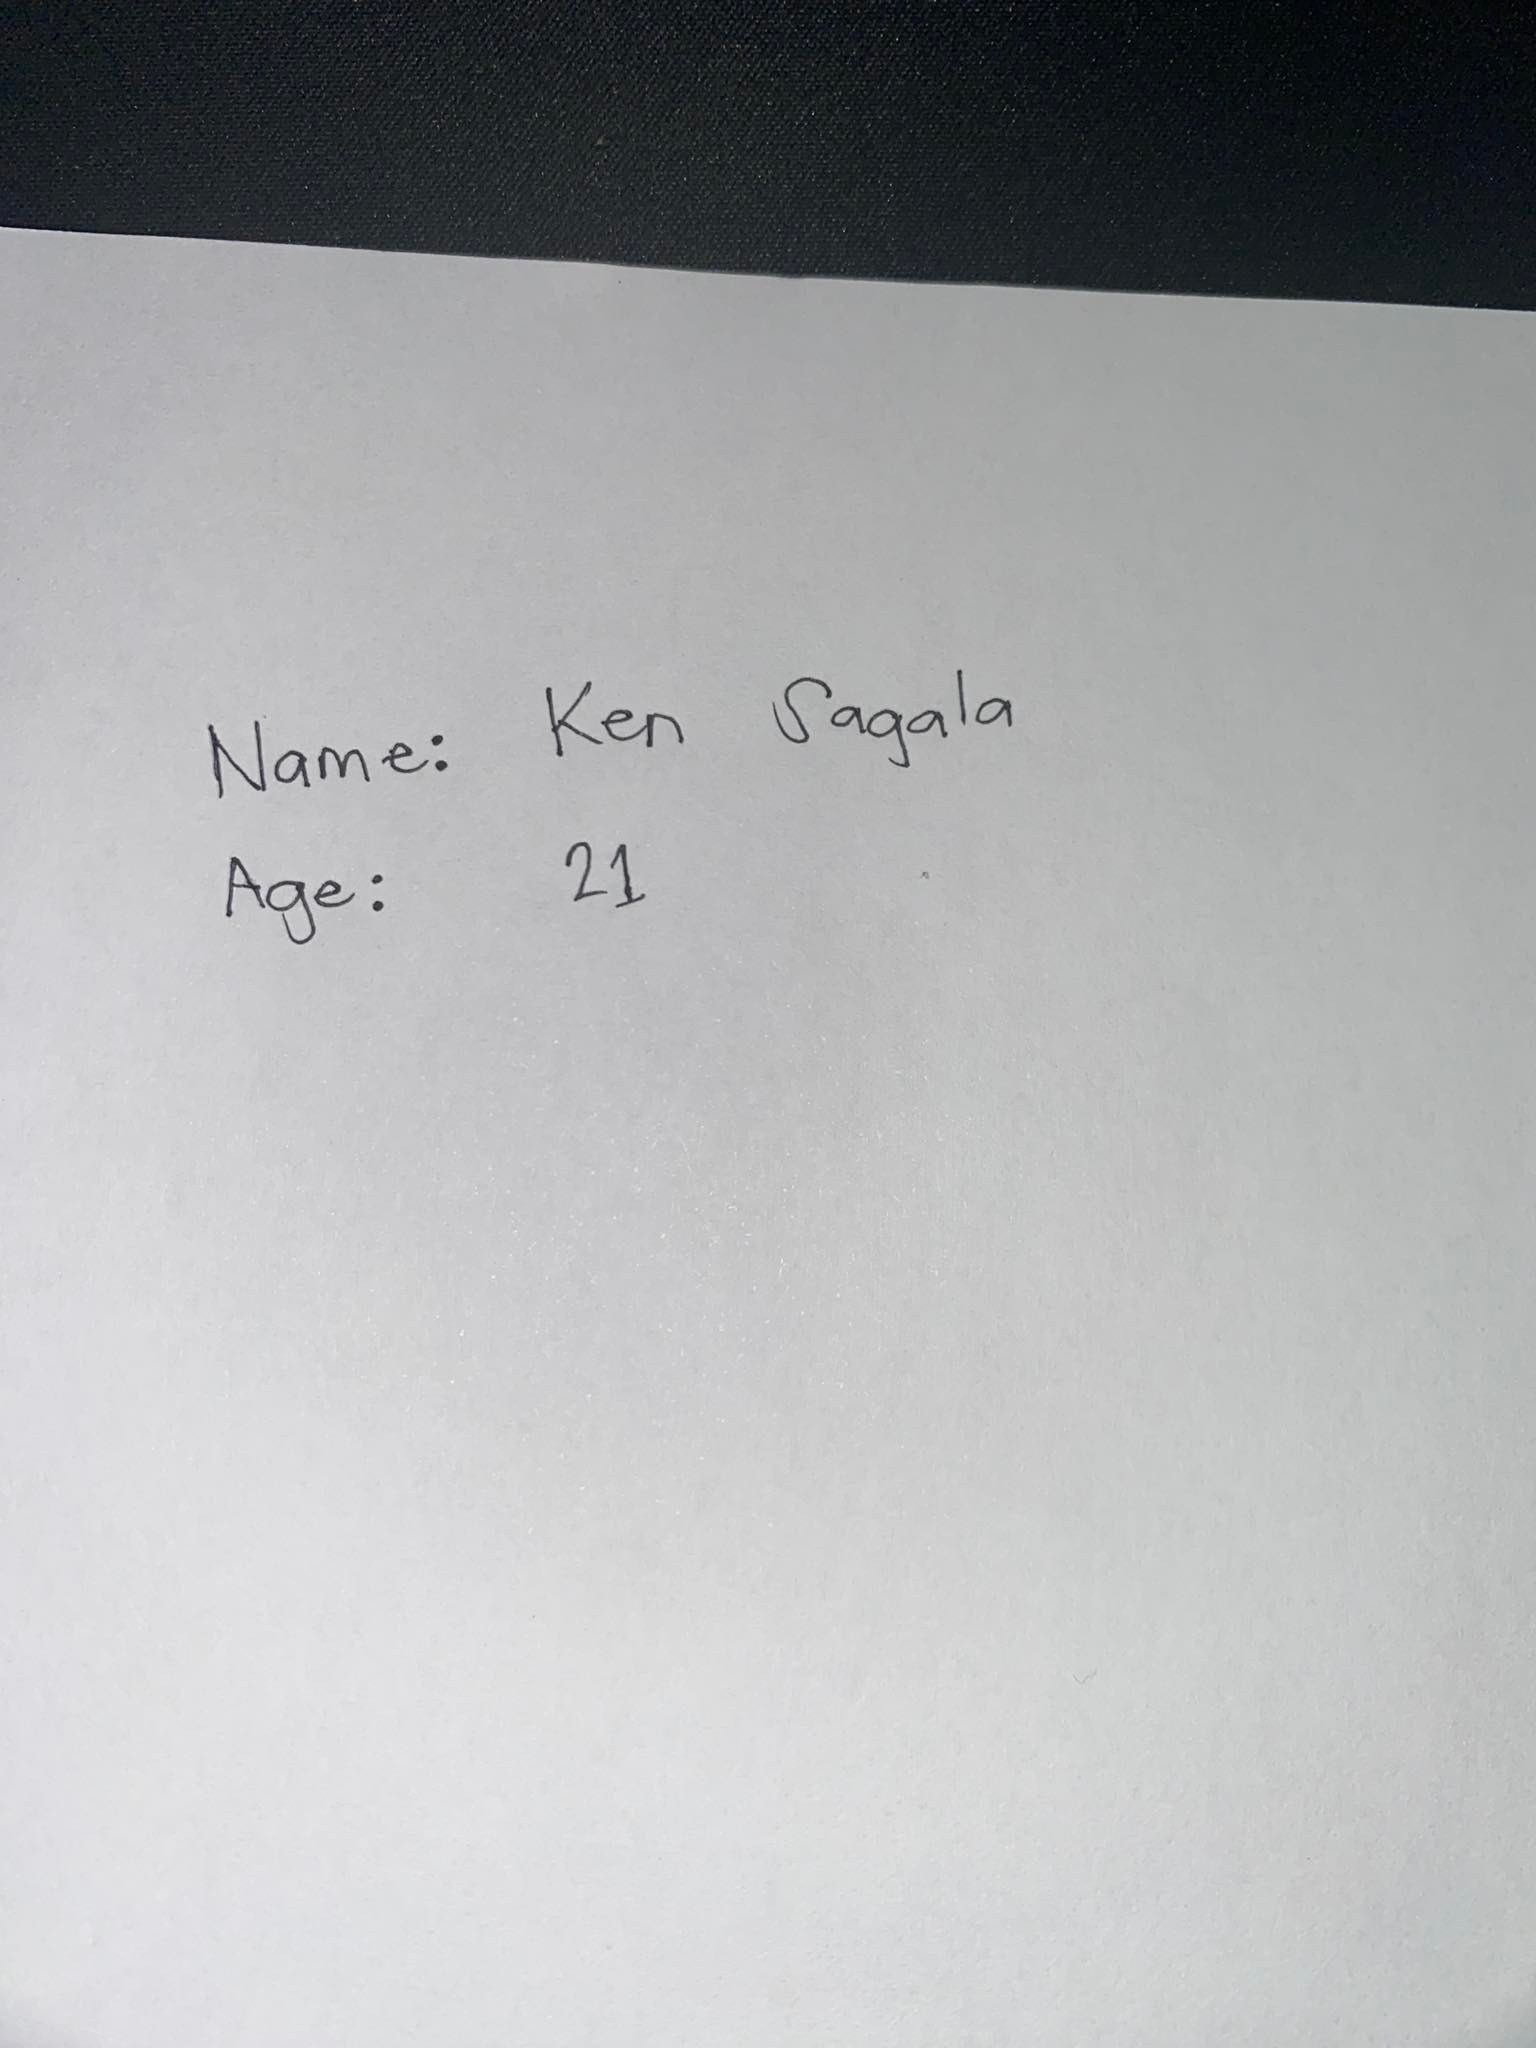 Name: Ken Sagala
Age: 21